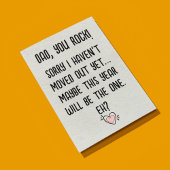 DAD, YOU ROCK!
SORRY I HAVEN'T
MOVED OUT YET...
MAYBE THIS YEAR
WILL BE THE ONE.
EH?